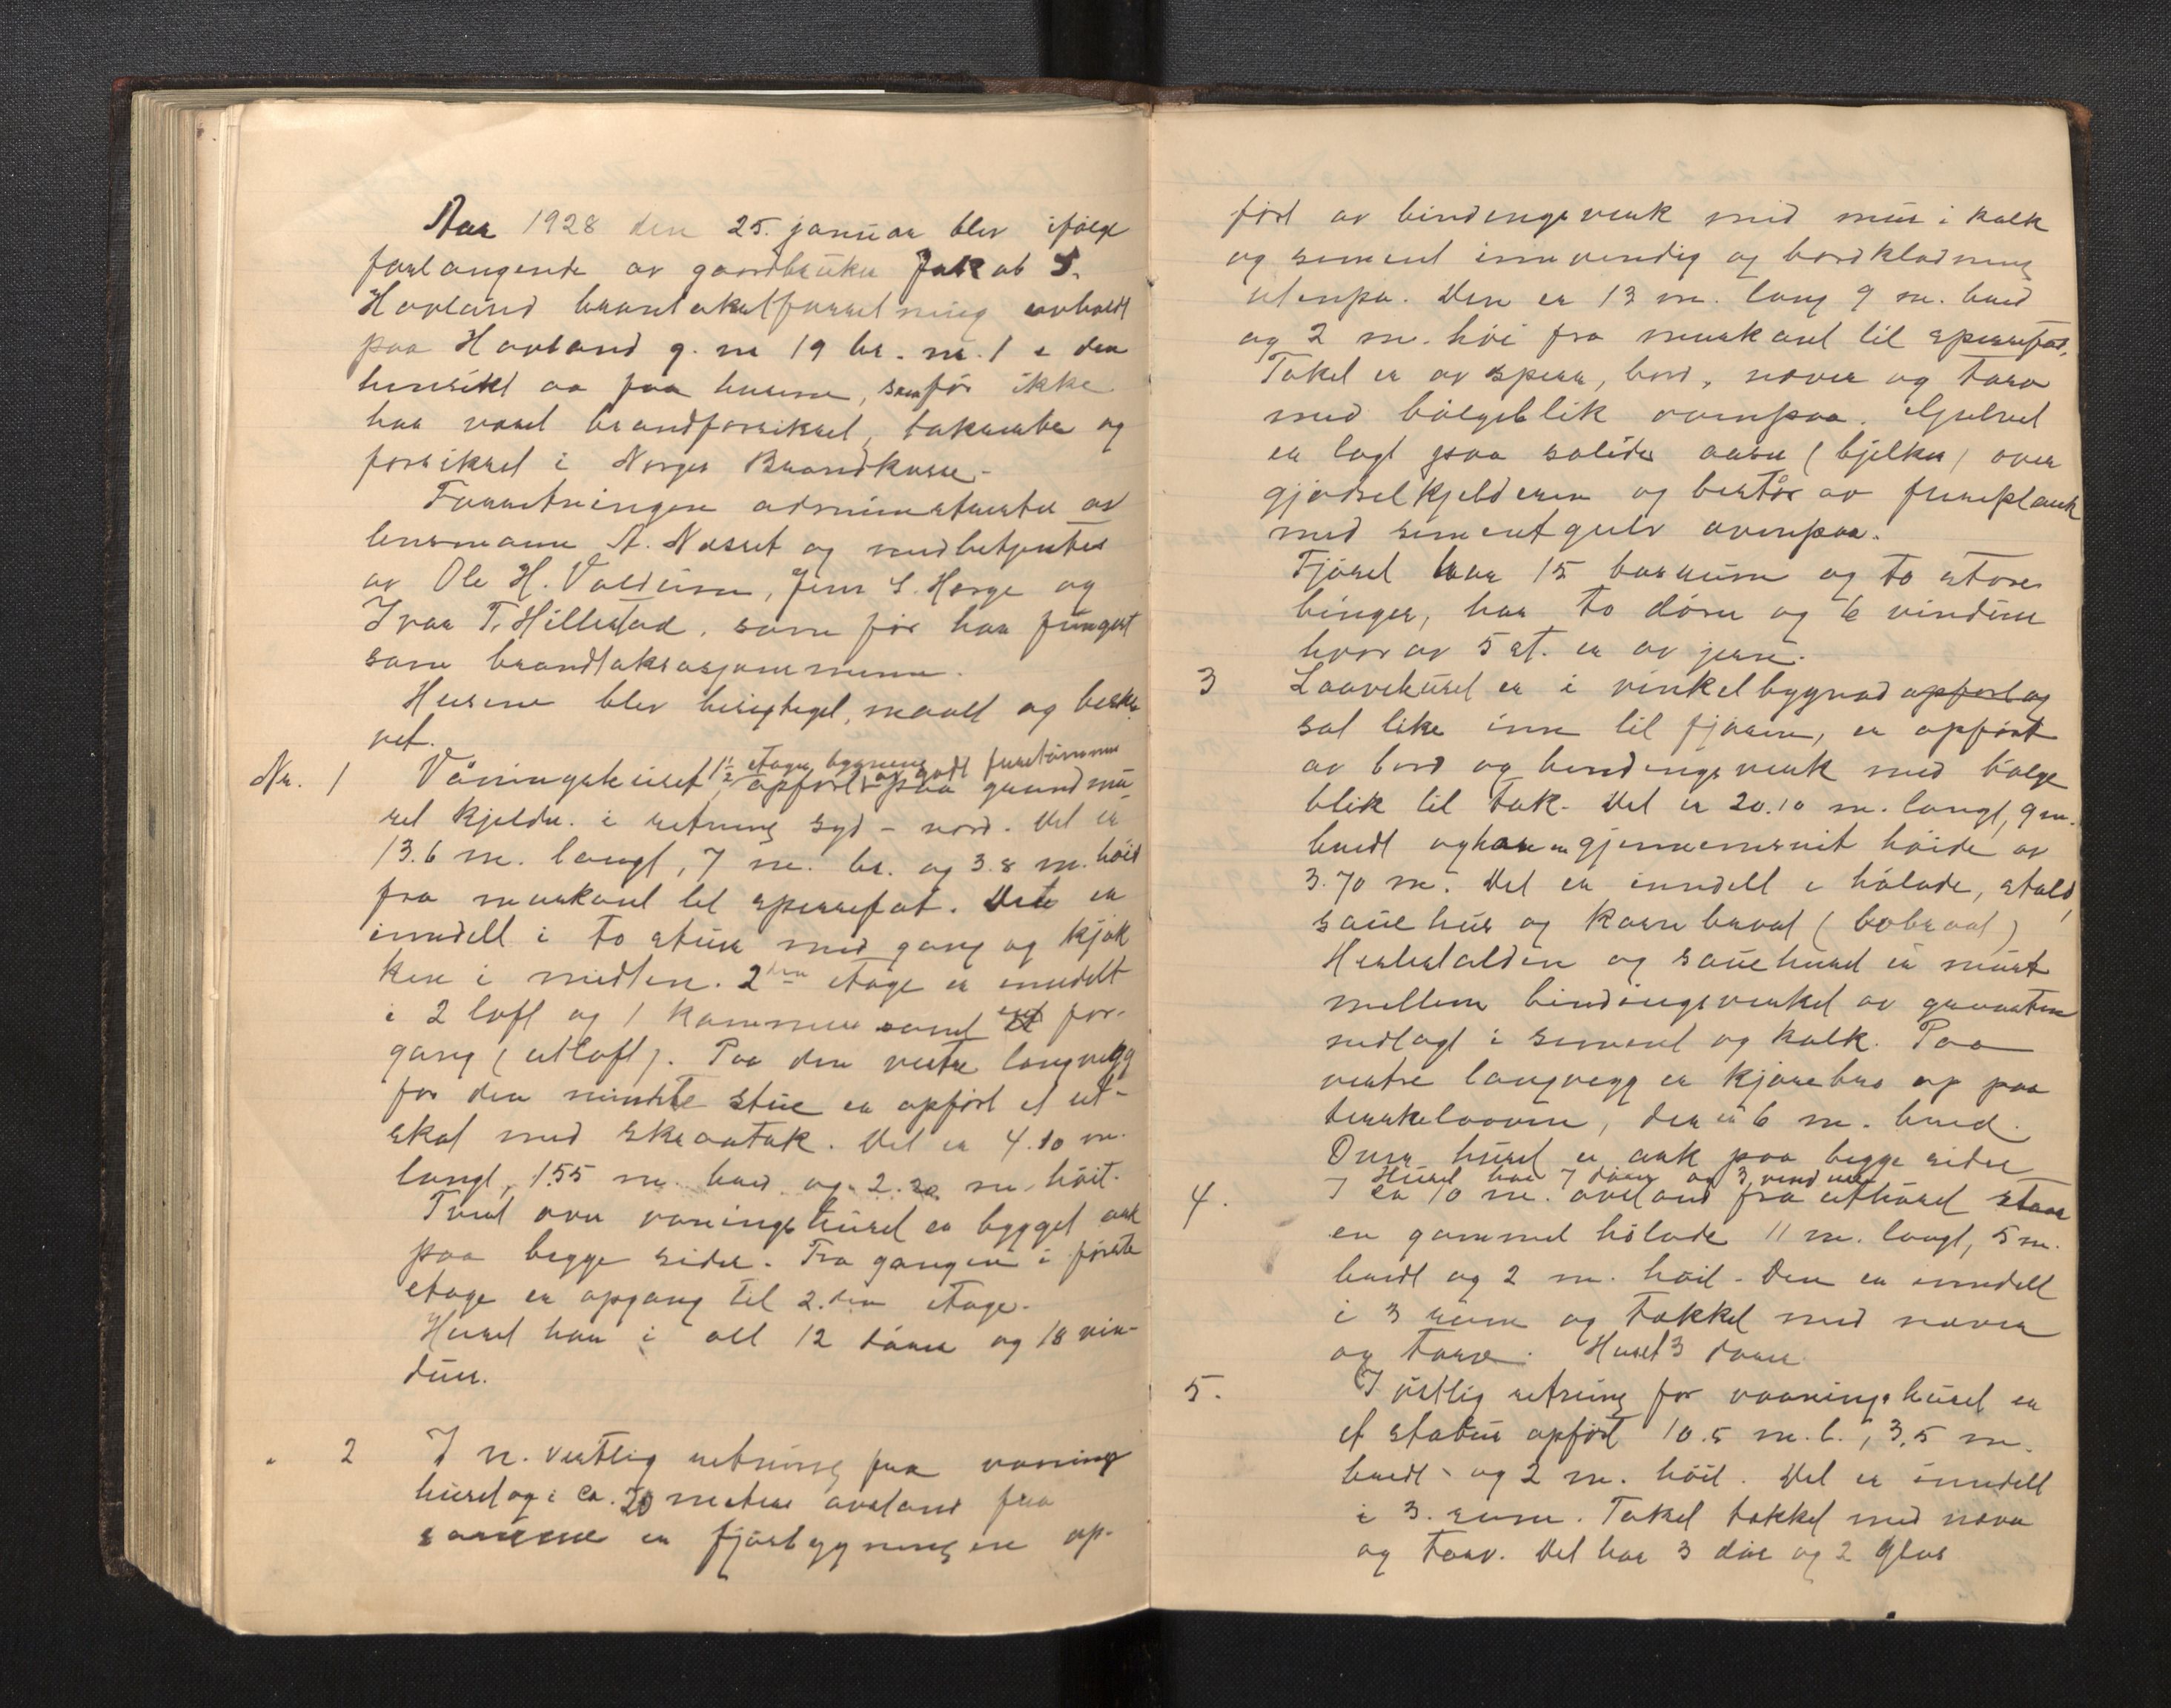 Aar 1928 den 25. januar blev ifølge
forlangende av gaardbruker Jakob S.
Hovland brantakstforretning avholdt
paa Hovland g. nr 19 br. nr. 1 i den
hensikt aa faa husene, som før ikke
har været brandforsikret, taksert og
forsikret i Norges Brandkasse.
Forretningen administrertes av
lensmann A. Næset og medbetjentes
av Ole H. Valdeim, Jens S. Horge og
Ivar T. Hillestad, som før har fungert
som brandtakstasjonsmenn.
Husene blev besigteget, maalt og beskre-
vet.
Nr. 1 Våningshuset, 1½ etages bygning opført av godt furetømmer paa grundmu-
ret kjelder i retning syd - nord. Det er
13.6 m. langt, 7 m. br. og 3.8 m. høit
fra murkant til sperrefot. Det er
inndelt i to stuer med gang og kjøk
ken i midten. 2den etage er inndelt
i 2 loft og 1 kammer samt en for-
gang (utloft). Paa den vestre langvegg
for den minste stue er opført et ut-
skot med skraatak. Det er 4.10 m.
langt, 1.55 m. bred og 2.20 m. høit.
Tvert over vaningshuset er bygget ark
paa begge sider. Fra gangen i første
etage er opgang til 2.den etage.
Huset har i alt 12 dører og 18 vin-
duer.
" 2 I n. vestlig retning fra vaanings
huset og i ca. 20 meters avstand fra
samme er fjøsbygningen op-
ført av bindingsverk med mur i kalk
og sement innvendig og bordklædning
utenpa. Den er 13 m. lang 9 m. bred
og 2 m. høi fra murkant til sperrefot.
Taket er av sperr, bord, never og torv
med bølgeblik ovenpaa. Gulvet
er lagt paa solide aaser (bjelker) over
gjødselkjelderen og består av fureplank
med sementgulv ovenpaa.
Fjøset har 15 baasrum og to store
binger, har to dører og 6 vinduer
hvorav 5 st. er av jern.
3 Laavehuset er i vinkelbygnad opført og
sat like inn til fjøsen, er opført
av bord og bindingsverk med bølge
blik til tak. Det er 20.10 m. langt, 9 m.
bredt og har en gjennemsnit høide av
3.70 m. Det er inndelt i hølade, stald,
sauehus og kornbraat (bobraat)
Hestestalden og sauehuset er muret
mellem bindingsverket av graasten
nedlagt i sement og kalk. Paa
vestre langvegg er kjørebro op paa
treskeloven, den er 6 m. bred.
Over huset er ark paa begge sider
Huset har 7 dører og 3 vinduer
4. I ca 10 m. avstand fra uthuset staar
en gammel hølade 11 m. langt, 5 m.
bredt og 2 m. høit. Den er inndelt
i 3 rum og tækket med never
og torv. Huset 3 dører
5. I østlig retning for vaaningshuset er
et stabur opført 10.5 m. l., 3.5 m.
bredt og 2 m. høit. Det er inndelt
i 3 rum. Taket tækket med never
og torv. Det har 3 dør og 2 glas